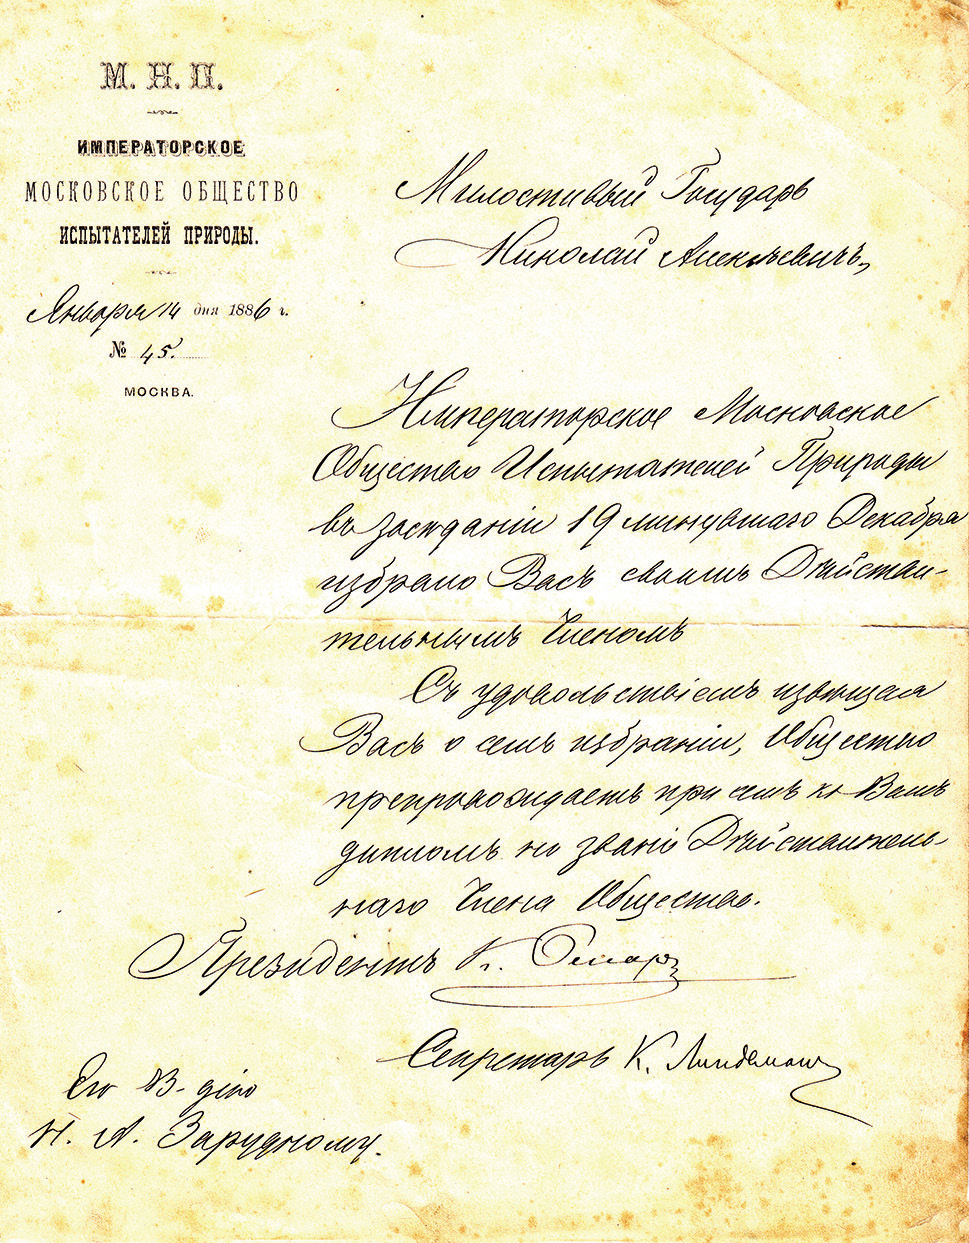 М. Н. П.
ИМПЕРАТОРСКОЕ
МОСКОВСКОЕ ОБЩЕСТВО
ИСПЫТАТЕЛЕЙ ПРИРОДЫ.
Января 14 дня 1886 г.
№ 45.
МОСКВА.
Милостивый Государь
Николай Алексѣевичъ,
Императорское Московское
Общество Испытателей Природы
въ засѣданіи 19 минувшаго Декабря
избрало Васъ своимъ Дѣйстви-
тельнымъ Членомъ
Съ удовольствіемъ извѣщая
Васъ о семъ избраніи, Общество
препровождаетъ при семъ къ Вамъ
дипломъ на званіе Дѣйствитель-
наго Члена Общества.
Президентъ К.
Секретарь К. Линдеманъ
Его В-дію
Н. А. Зарудному.